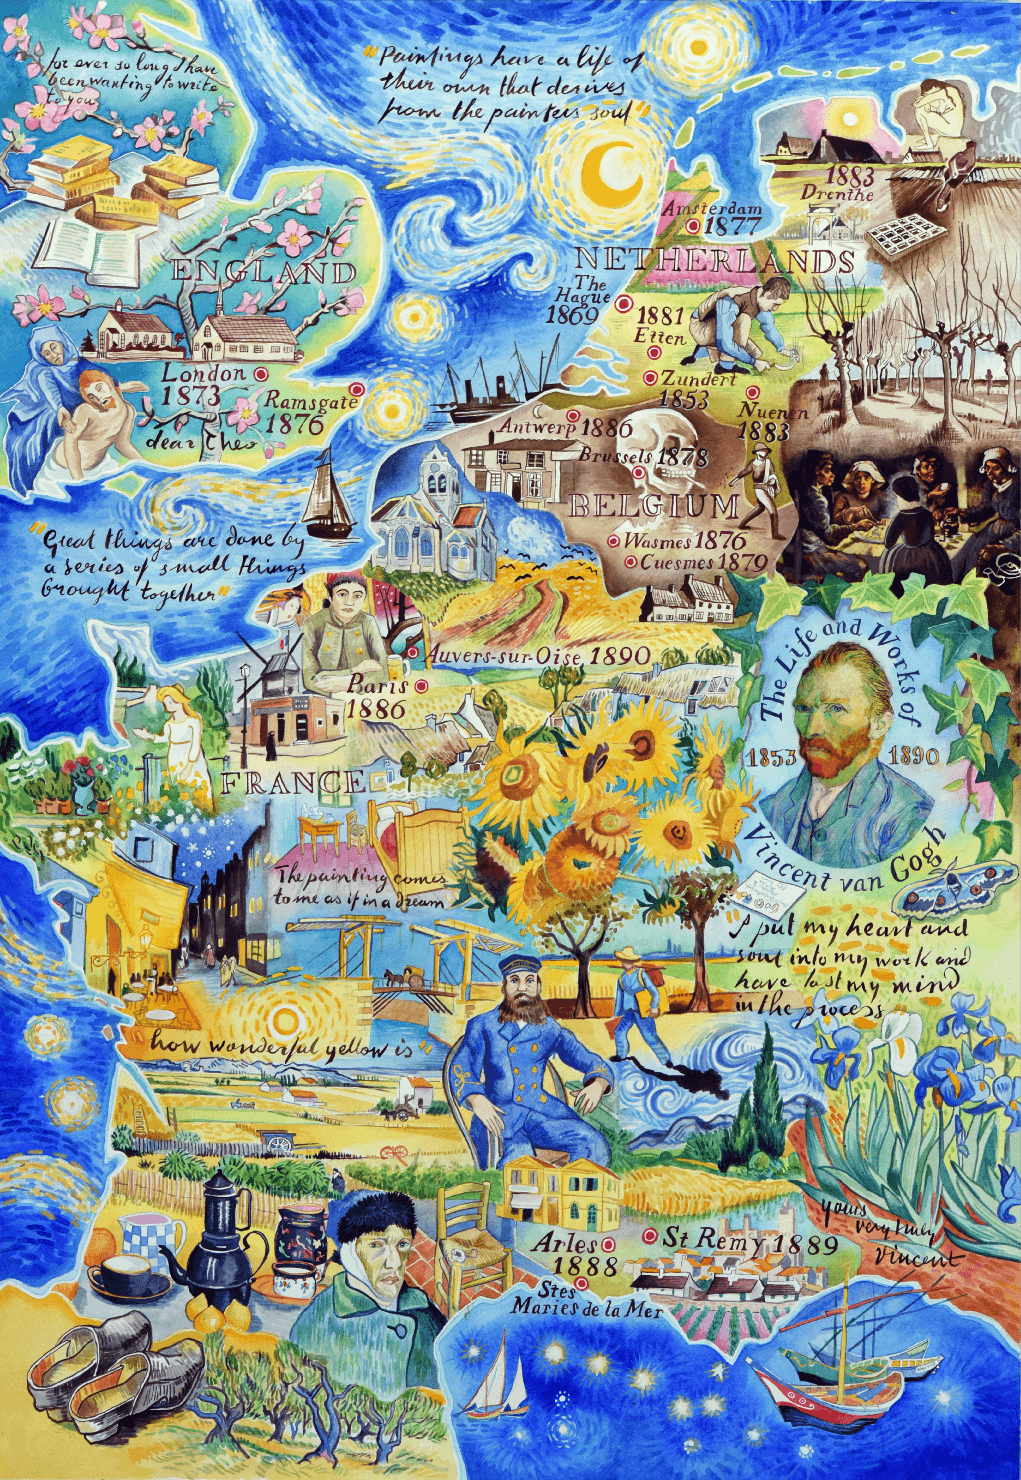 for ever so long I have
been wanting to write
to you
"Paintings have a life of
their own that derives
from the painters soul"
1883
Drenthe
Amsterdam
1877
ENGLAND
NETHERLANDS
The
Hague
1869
1881
Etten
London
1873
Ramsgate
1876
dear Theo
Zundert
1853
Nuenen
1883
Antwerp 1886
Brussels 1878
BELGIUM
Wasmes 1876
Cuesmes 1879
"Great things are done by
a series of small things
brought together"
Auvers-sur-Oise 1890
Paris
1886
The Life and Works of
1853 1890
Vincent van Gogh
FRANCE
The painting comes
to me as if in a dream
"I put my heart and
soul into my work and
have lost my mind
in the process
how wonderful yellow is"
yours
very truly
Vincent
Arles
1888
St Remy 1889
Stes
Maries de la Mer